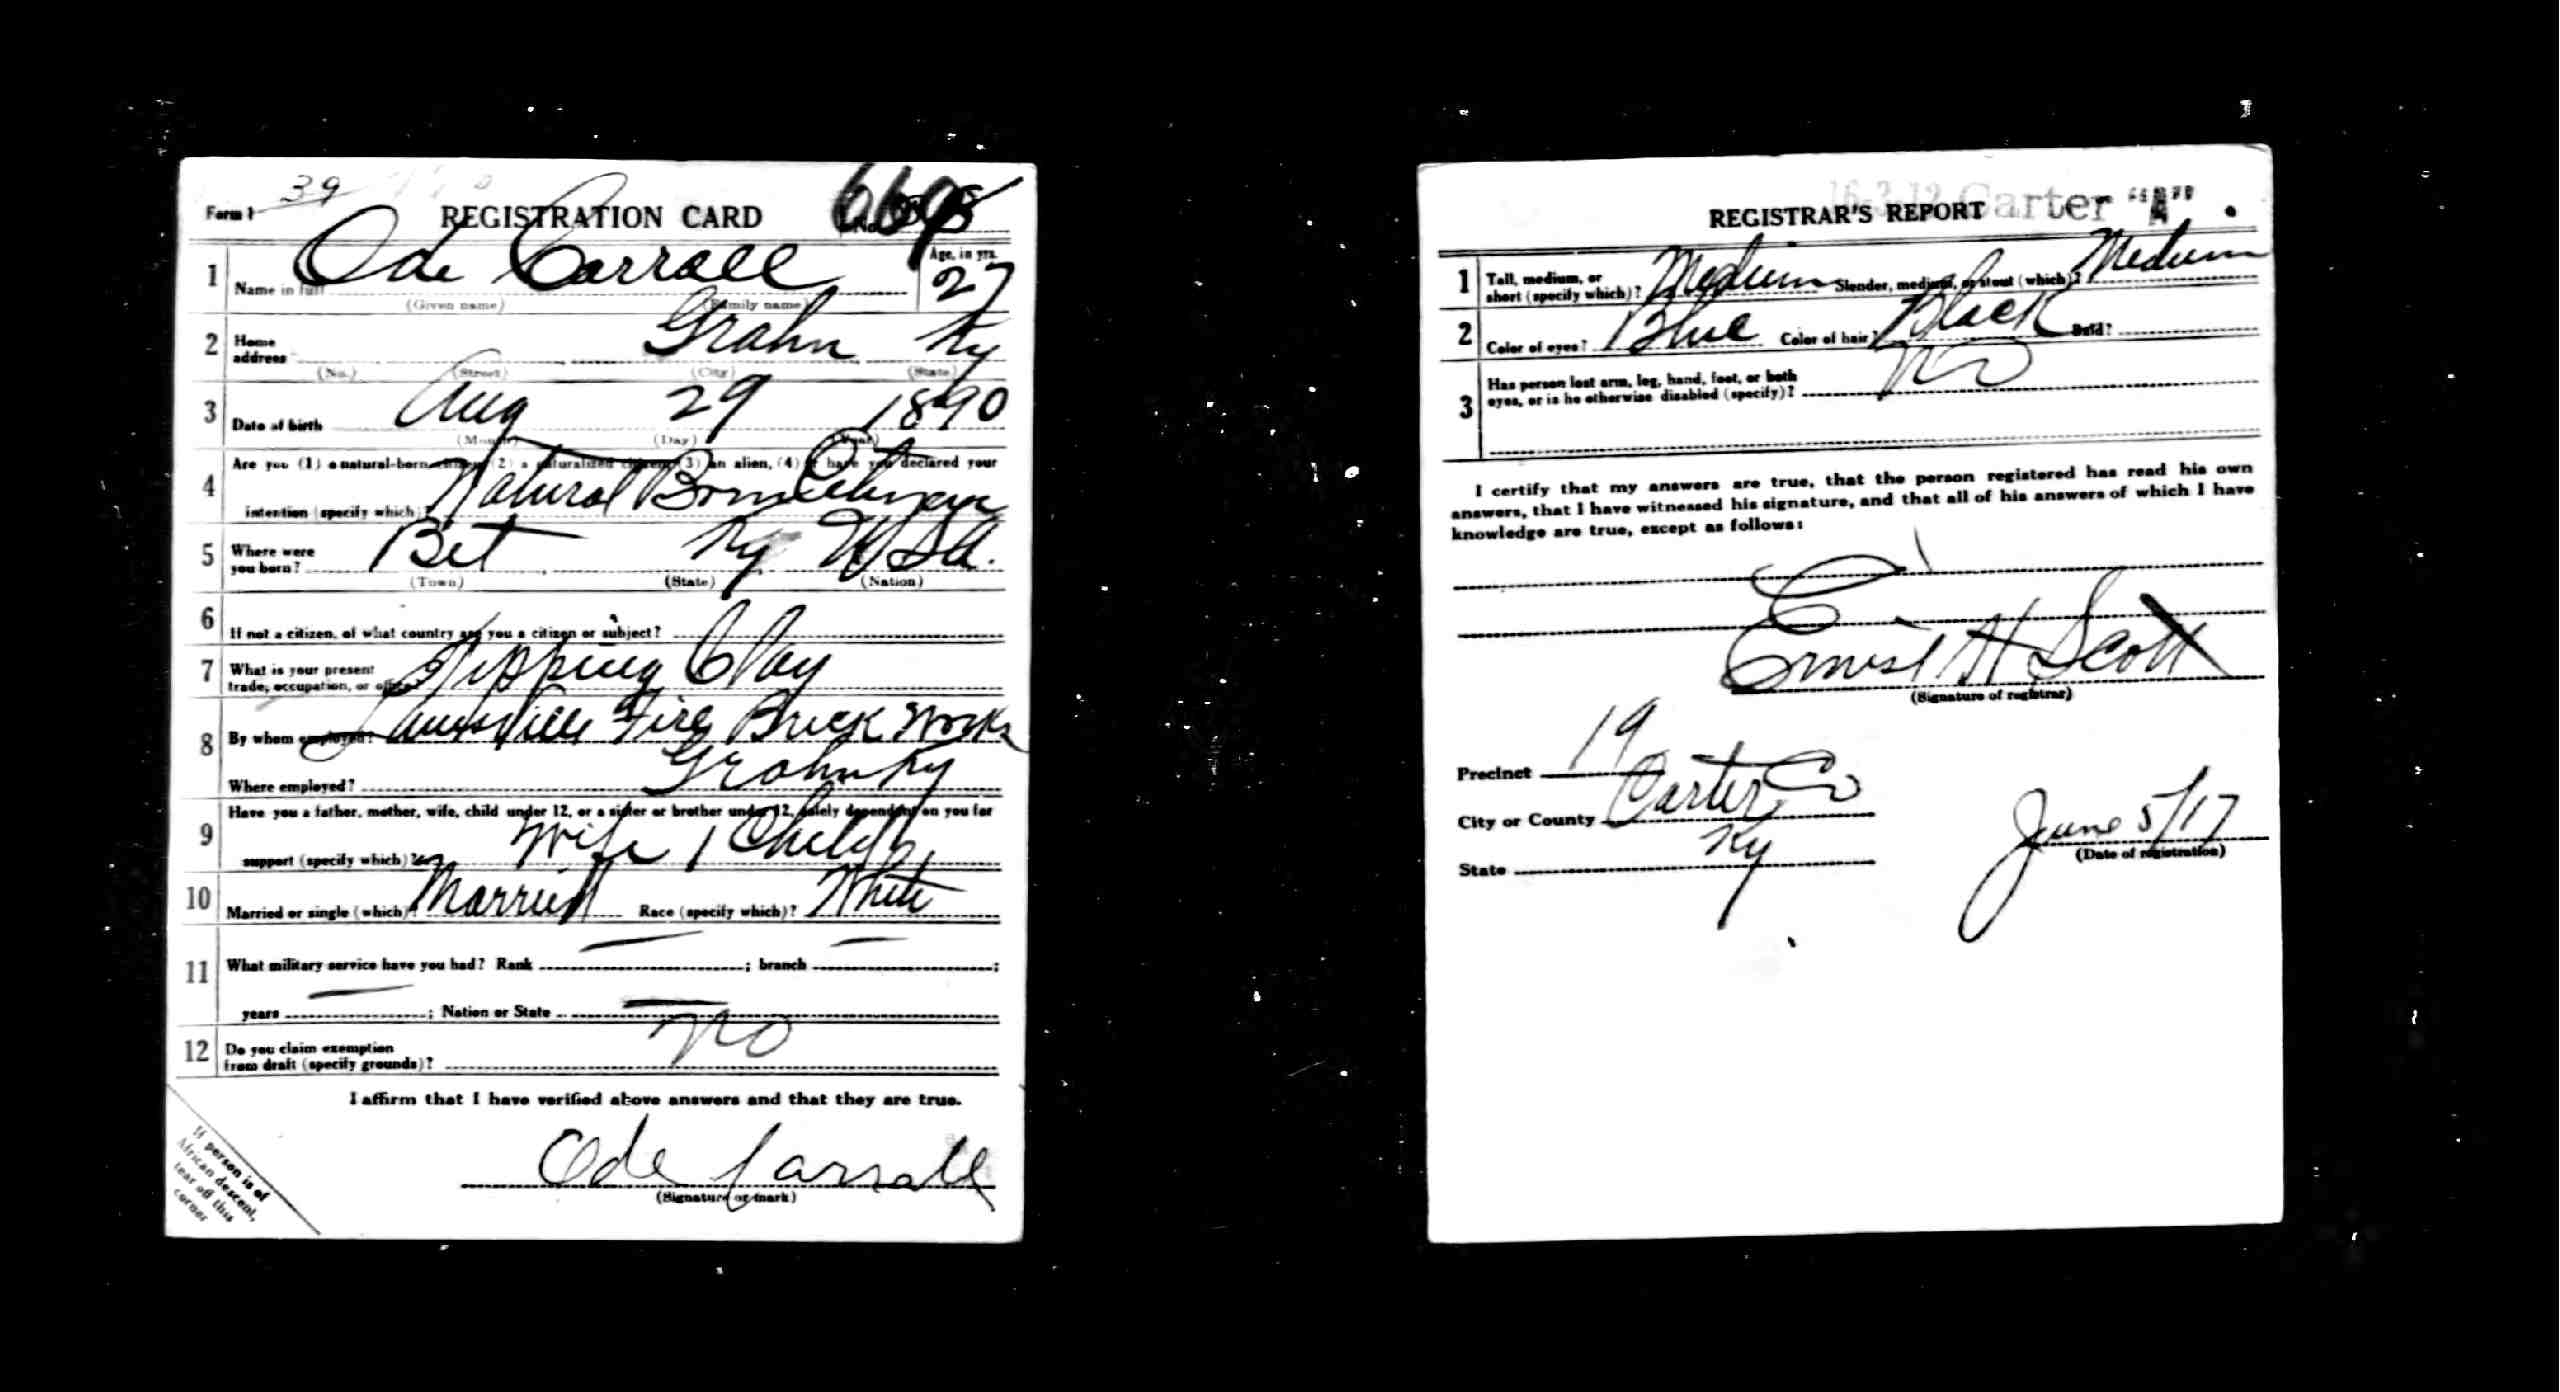 Form 1 39 REGISTRATION CARD No.
1 Name in full Ode Carrall Age, in yrs. 27
(Given name) (Family name)
2 Home address Grahn Ky
(No.) (Street) (City) (State)
3 Date of birth Aug 29 1890
(Month) (Day) (Year)
4 Are you (1) a natural-born citizen (2) a naturalized citizen (3) an alien, (4) or have you declared your
intention (specify which)? Natural Born Citizen
5 Where were you born? Bet Ky USA.
(Town) (State) (Nation)
6 If not a citizen, of what country are you a citizen or subject?
7 What is your present trade, occupation, or office? Clay
8 By whom employed? Louisville Fire Brick Works
Where employed? Grahn Ky
9 Have you a father, mother, wife, child under 12, or a sister or brother under 12, solely dependent on you for
support (specify which)? Wife 1 Child
10 Married or single (which)? Married Race (specify which)? White
11 What military service have you had? Rank — ; branch — ;
years — ; Nation or State —
12 Do you claim exemption from draft (specify grounds)? No
I affirm that I have verified above answers and that they are true.
Ode Carrall
(Signature or mark)
If person is of
African descent,
tear off this
corner
16-3-12 Carter "A" .
REGISTRAR'S REPORT
1 Tall, medium, or short (specify which)? Medium Slender, medium, or stout (which)? Medium
2 Color of eyes? Blue Color of hair? Black Bald?
3 Has person lost arm, leg, hand, foot, or both eyes, or is he otherwise disabled (specify)? No
I certify that my answers are true, that the person registered has read his own
answers, that I have witnessed his signature, and that all of his answers of which I have
knowledge are true, except as follows:
Ernest H Scott
(Signature of registrar)
Precinct 19
City or County Carter Co
State Ky
June 5/17
(Date of registration)